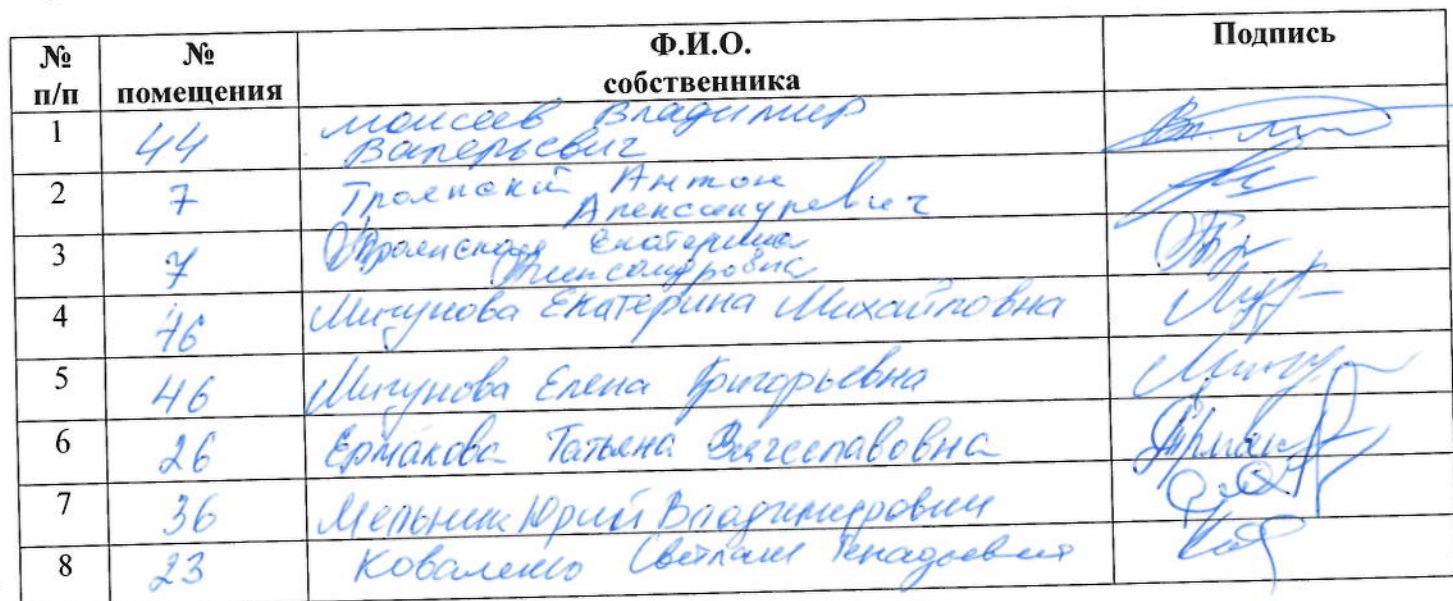 № п/п № помещения Ф.И.О. собственника Подпись
1 44 Моисеев Владимир
Валерьевич
2 7 Троянский Антон
Александрович
3 7 Троянская Екатерина
Александровна
4 46 Мигунова Екатерина Михайловна
5 46 Мигунова Елена Григорьевна
6 26 Ермакова Татьяна Вячеславовна
7 36 Мельник Юрий Владимирович
8 23 Коваленко Светлана Генадьевна